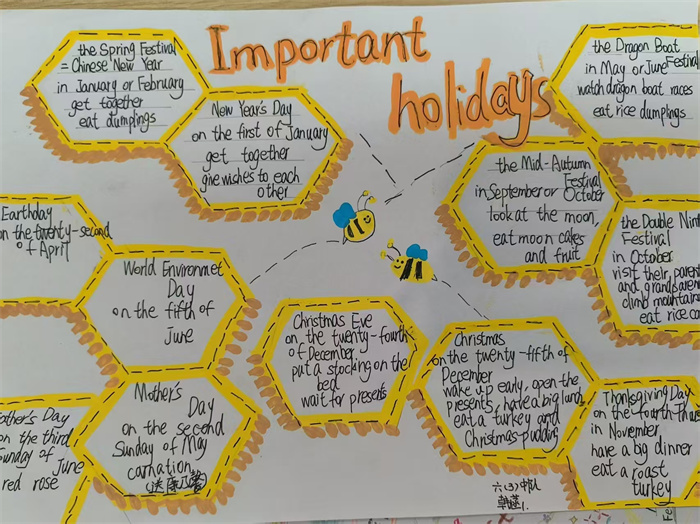 Important
holidays
the Spring Festival
= Chinese New Year
in January or February
get together
eat dumplings
New Year's Day
on the first of January
get together
give wishes to each
other
the Dragon Boat
Festival
in May or June
watch dragon boat races
eat rice dumplings
the Mid-Autumn
Festival
in September or October
look at the moon,
eat moon cakes
and fruit
the Double Nin
Festival
in October
visit their paren
and grandparen
climb mountain
eat rice ca
Earthday
on the twenty-second
of April
World Environmet
Day
on the fifth of
June
Christmas Eve
on the twenty-fourth
of December.
put a stocking on the
bed
wait for presents
Christmas
on the twenty-fifth of
December
wake up early, open the
presents, have a big lunch
eat a turkey and
Christmas pudding
Thanksgiving Day
on the fourth Thurs
in November
have a big dinner
eat a roast
turkey
Mother's
Day
on the second
Sunday of May
carnation
ather's Day
on the third
unday of June
red rose
六(3)中队